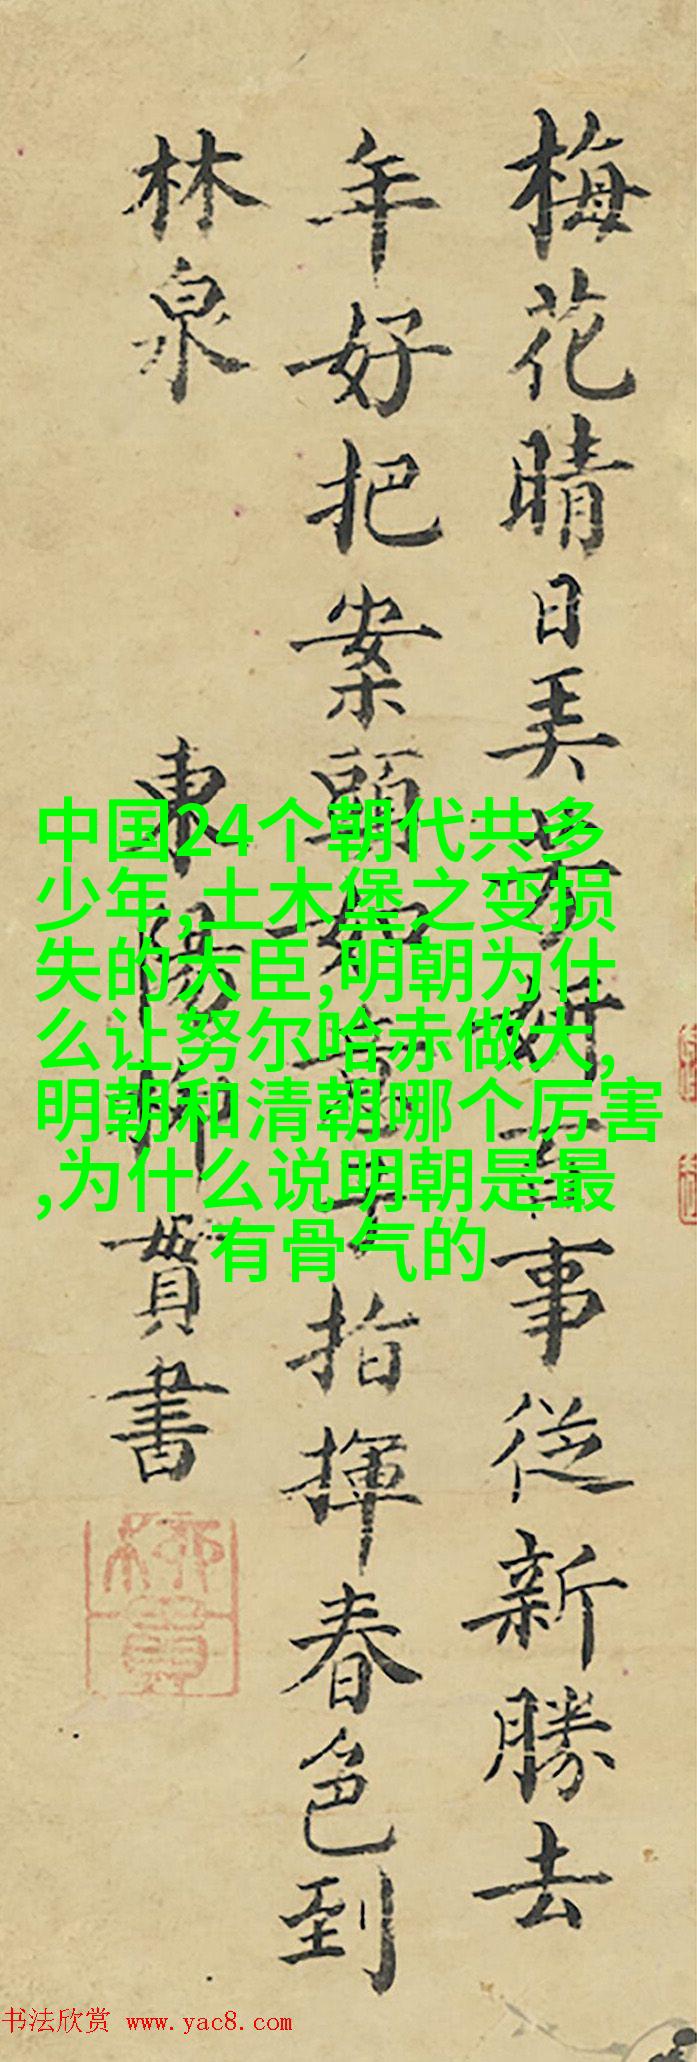 梅花晴日美芳妍百事從新勝去
年好把案頭如意子指揮春色到
林泉
東陽柳貫書
柳貫
中国24个朝代共多
少年,土木堡之变损
失的大臣,明朝为什
么让努尔哈赤做大,
明朝和清朝哪个厉害
,为什么说明朝是最
有骨气的
书法欣赏 www.yac8.com